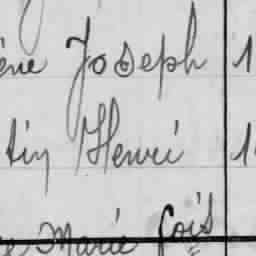 ène Joseph 1
tin Henri 1
Marie fois